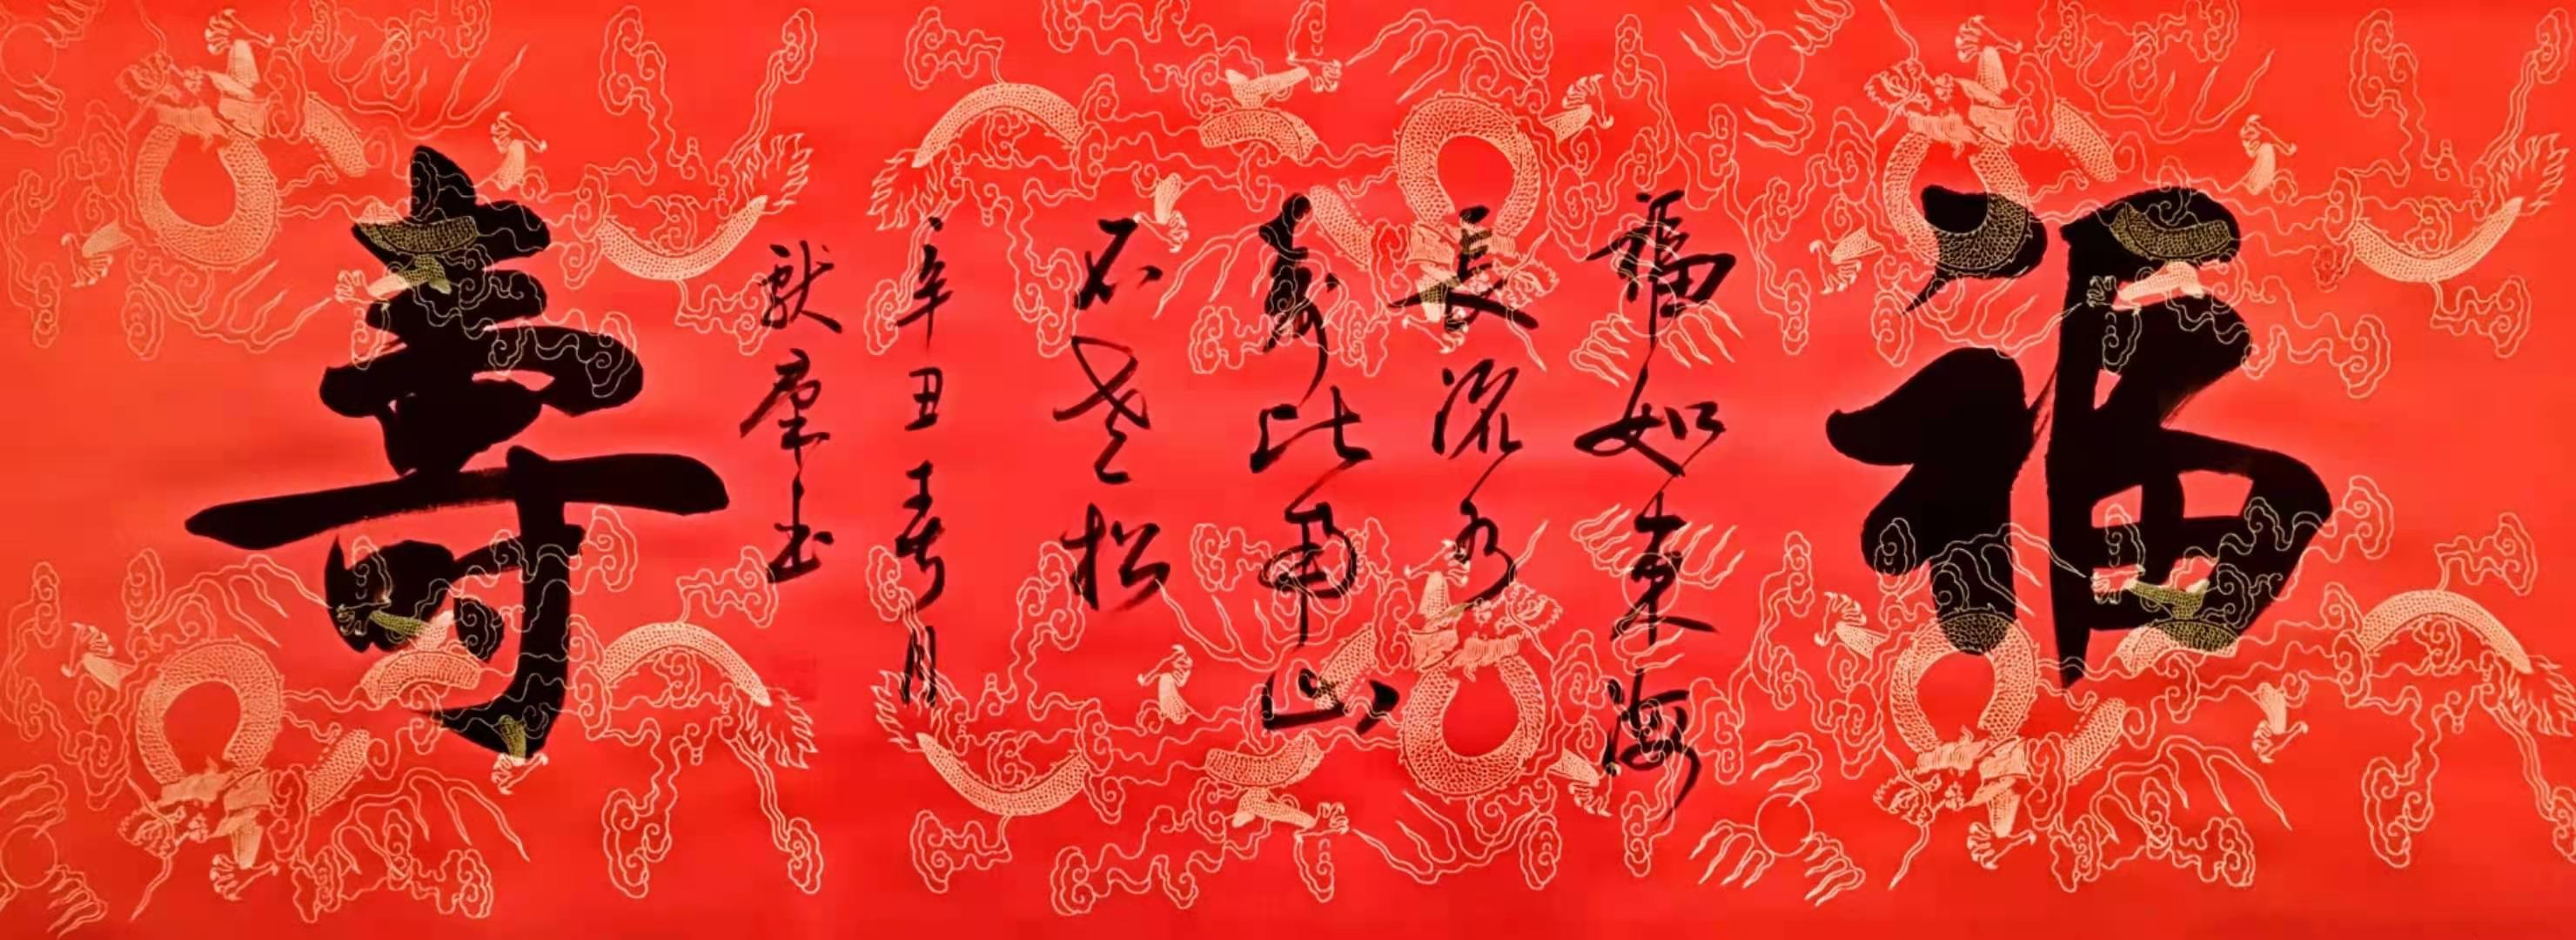 福
福如東海
長流水
寿比南山
不老松
辛丑春月
献群书
壽